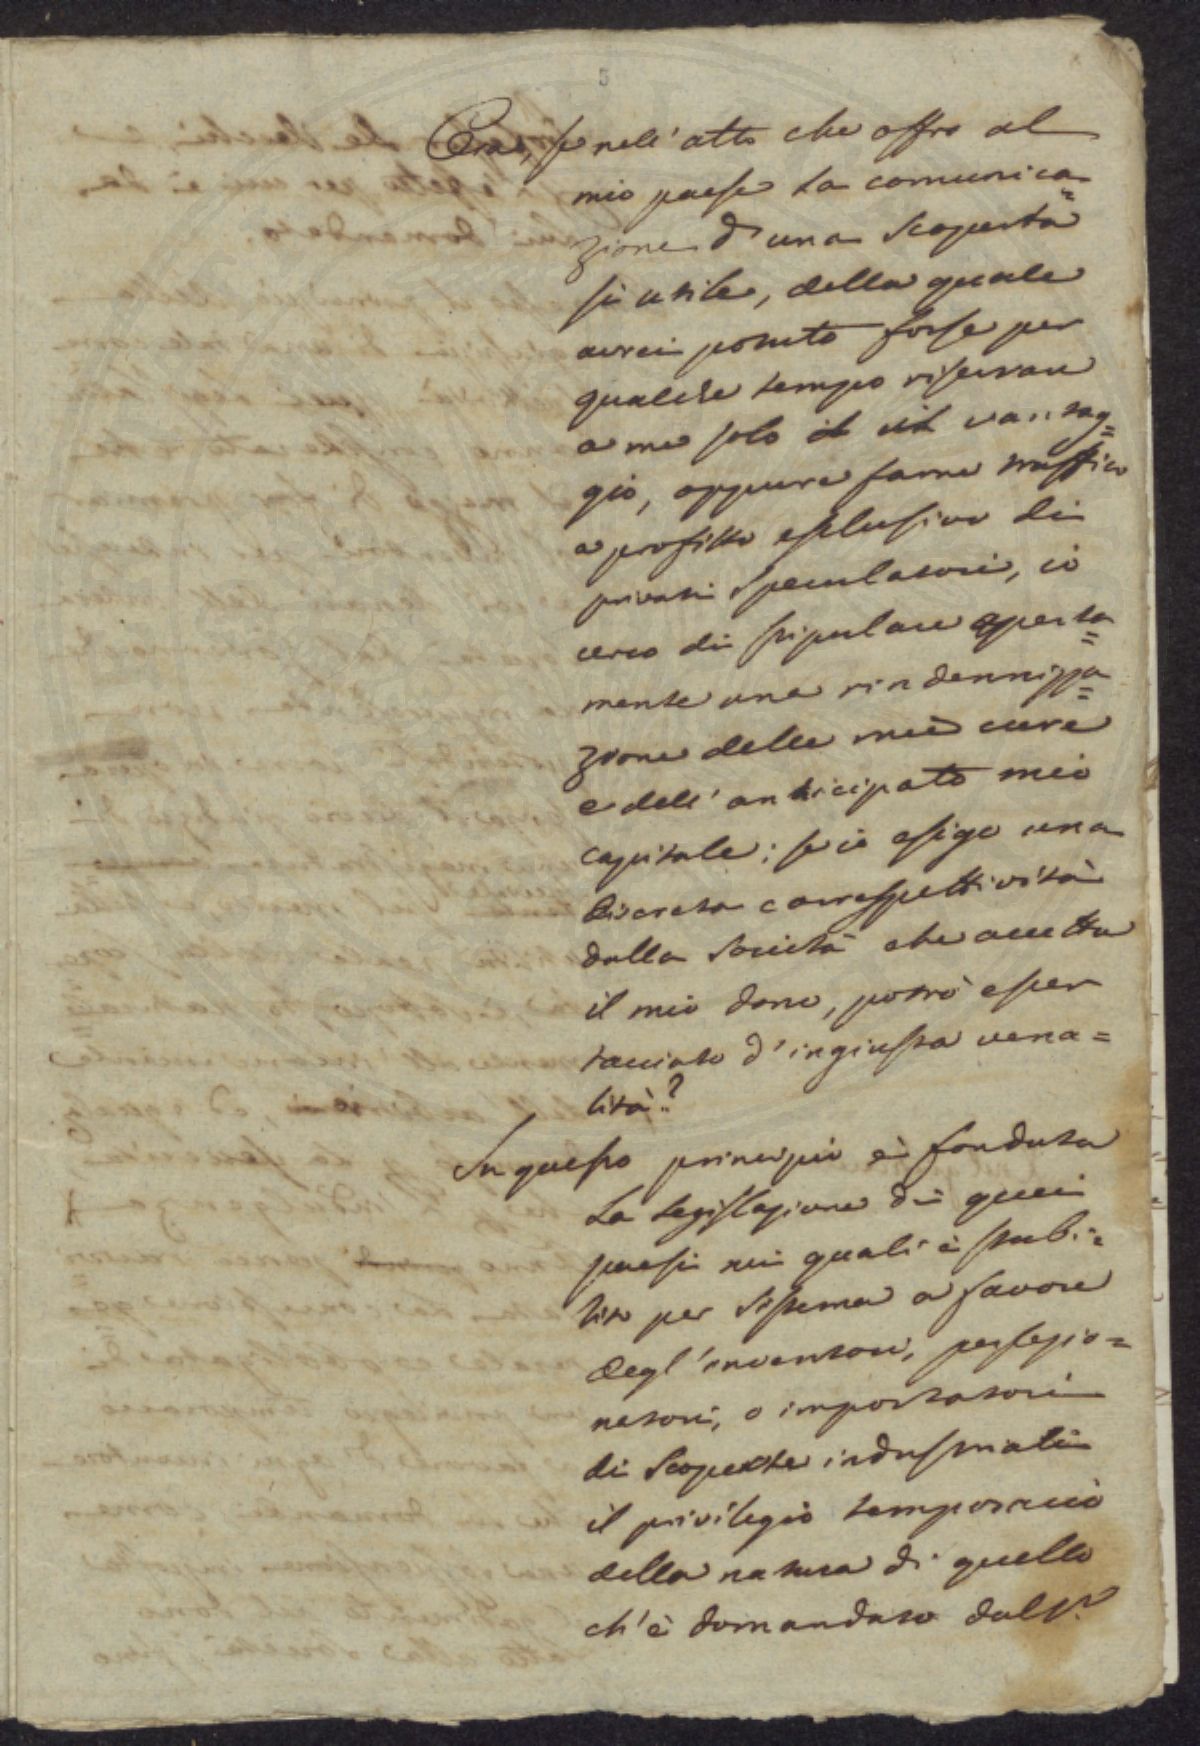 5
Ora, se nell'atto che offro al
mio paese la comunica=
zione d'una scoperta
sì utile, della quale
avrei potuto forse per
qualche tempo riservare
a me solo il vantag=
gio, oppure farne traffico
a profitto esclusivo di
privati speculatori, io
cerco di stipulare aperta=
mente una rindennizza=
zione delle mie cure
e dell'anticipato mio
capitale; se io esigo una
discreta correspettività
dalla Società che accetta
il mio dono, potrò esser
tacciato d'ingiusta vena=
lità?
In questo principio è fondata
la legislazione di quei
paesi nei quali è stabi=
lito per sistema a favore
degl'inventori, perfezio=
natori, o importatori
di scoperte industriali
il privilegio temporario
della natura di quello
ch'è domandato dal Sr.